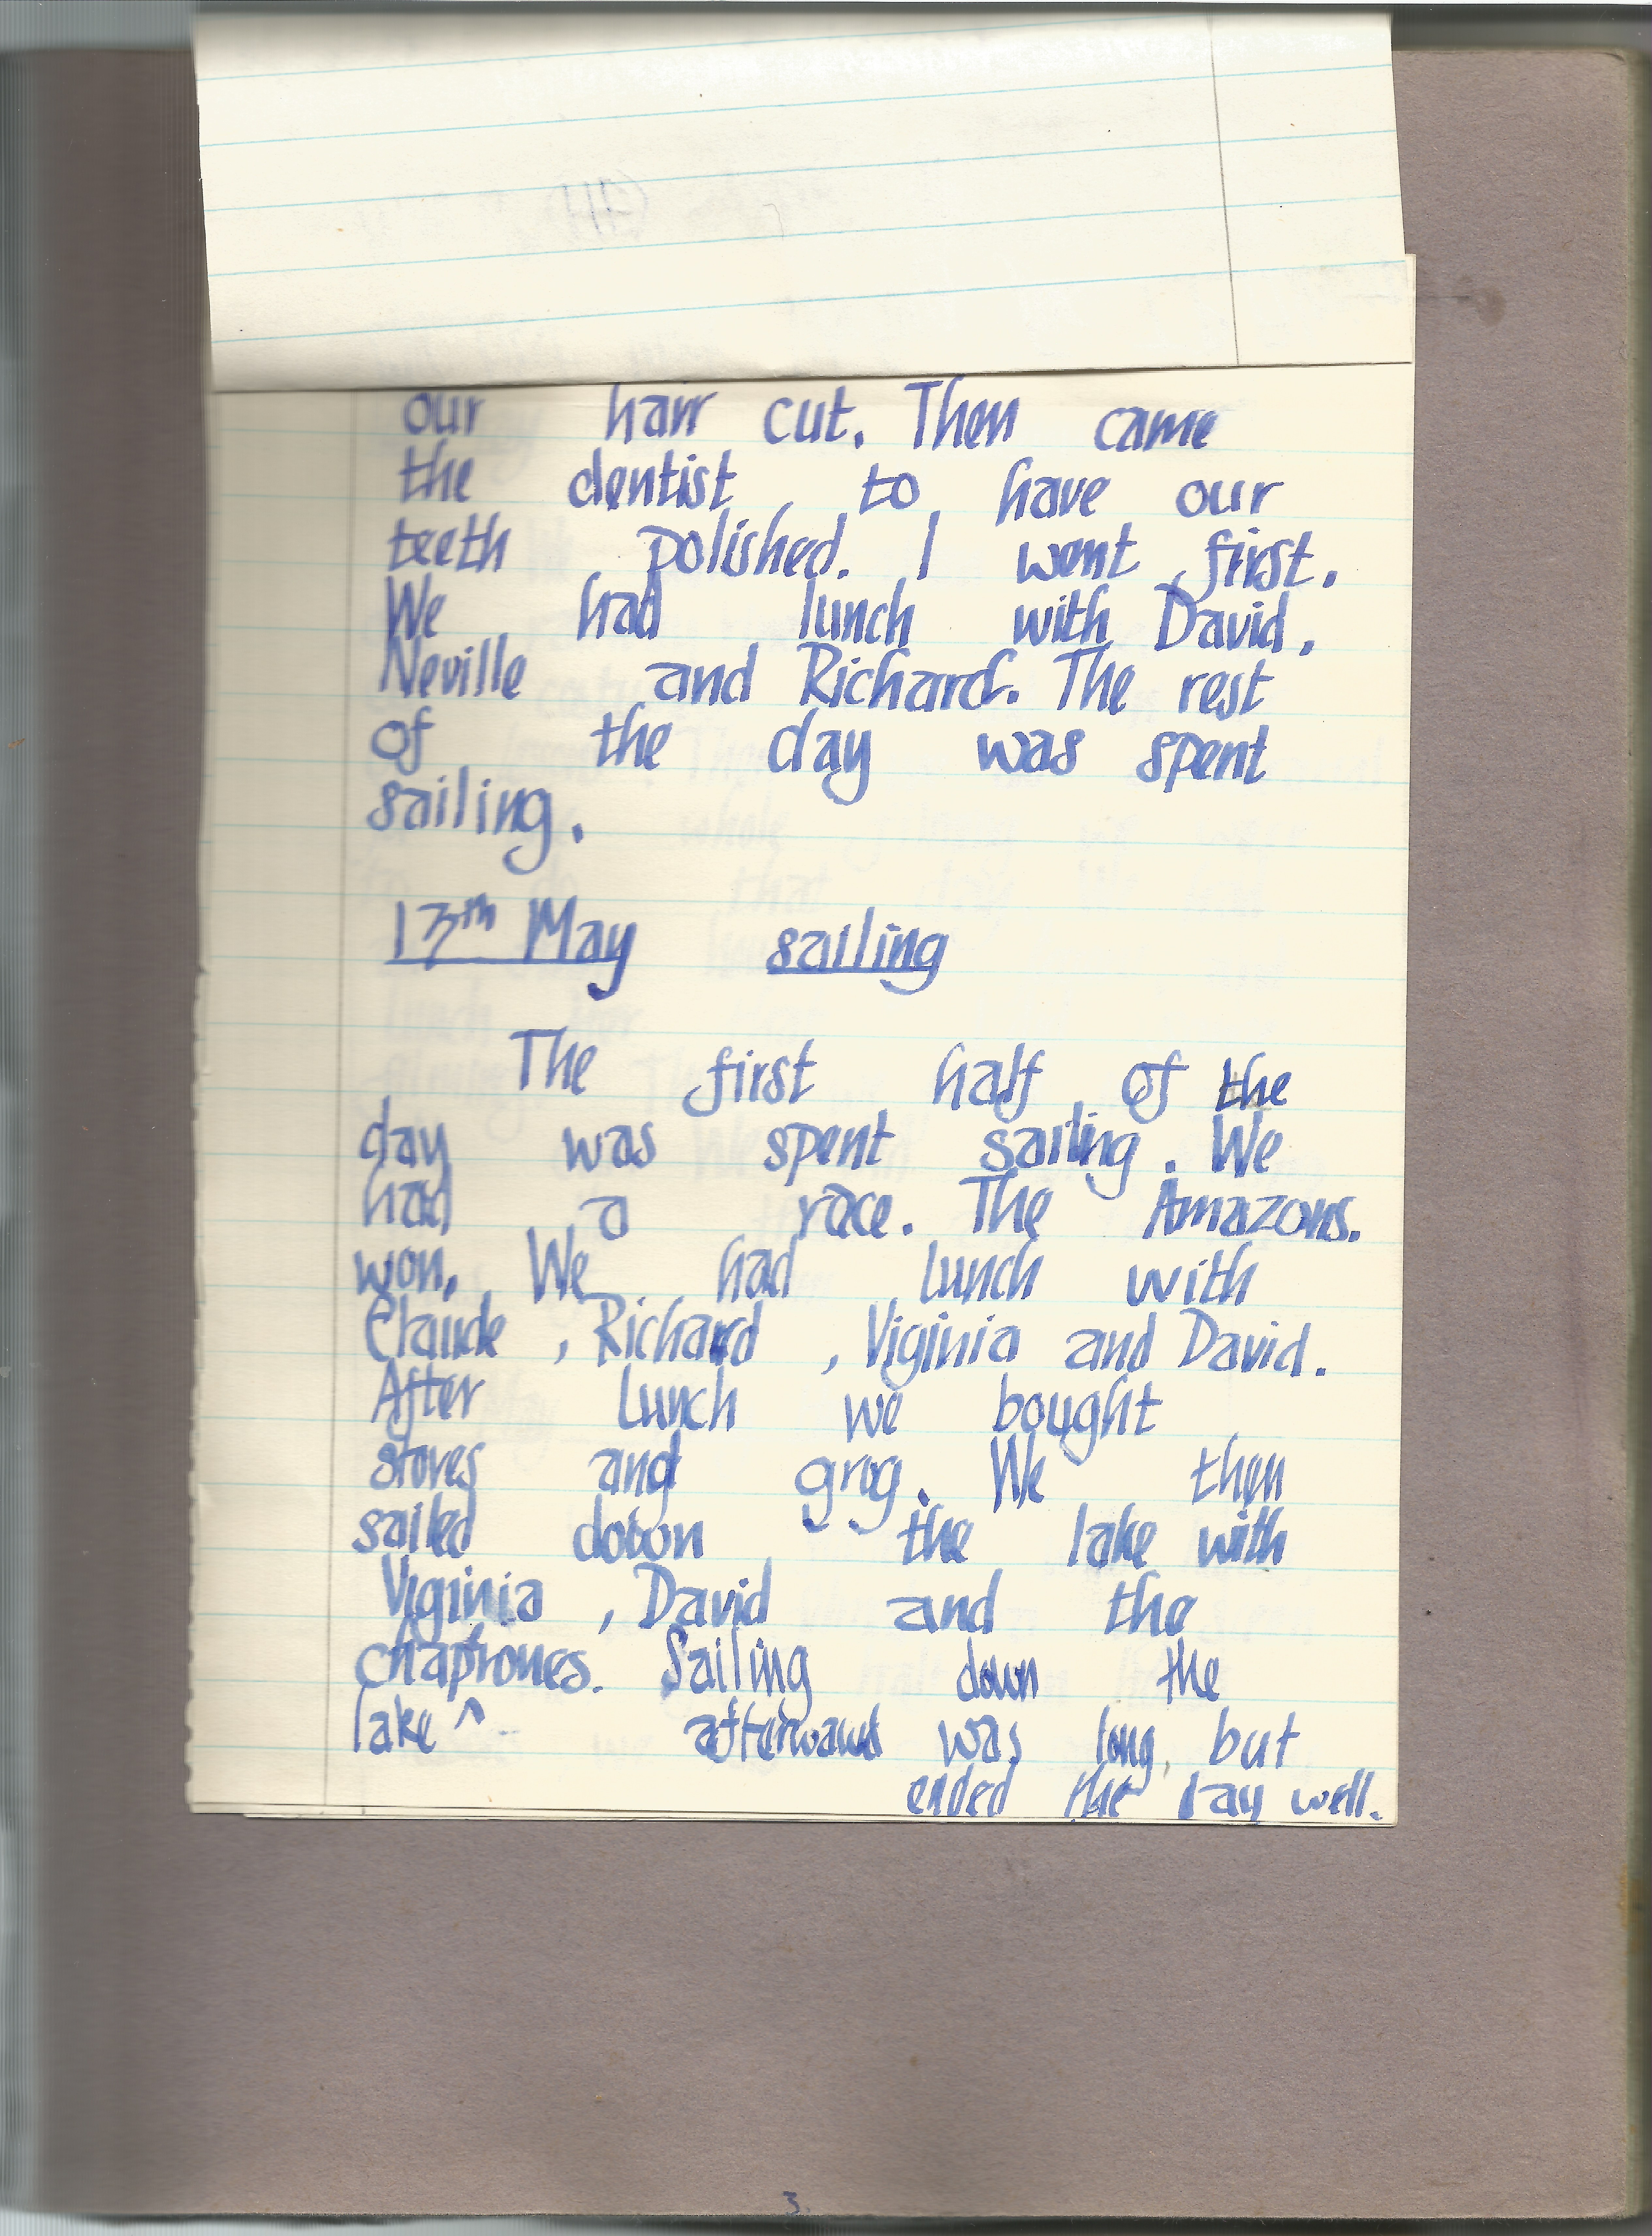 our hair cut. Then came
the dentist to have our
teeth polished. I went first.
We had lunch with David,
Neville and Richard. The rest
of the day was spent
sailing.
13th May sailing
The first half of the
day was spent sailing. We
had a race. The Amazons.
won. We had lunch with
Claude, Richard, Viginia and David.
After lunch we bought
stores and grog. We then
sailed down the lake with
Viginia, David and the
chaprones. Sailing down the
lake ^ afterward was long, but
ended the day well.
3.